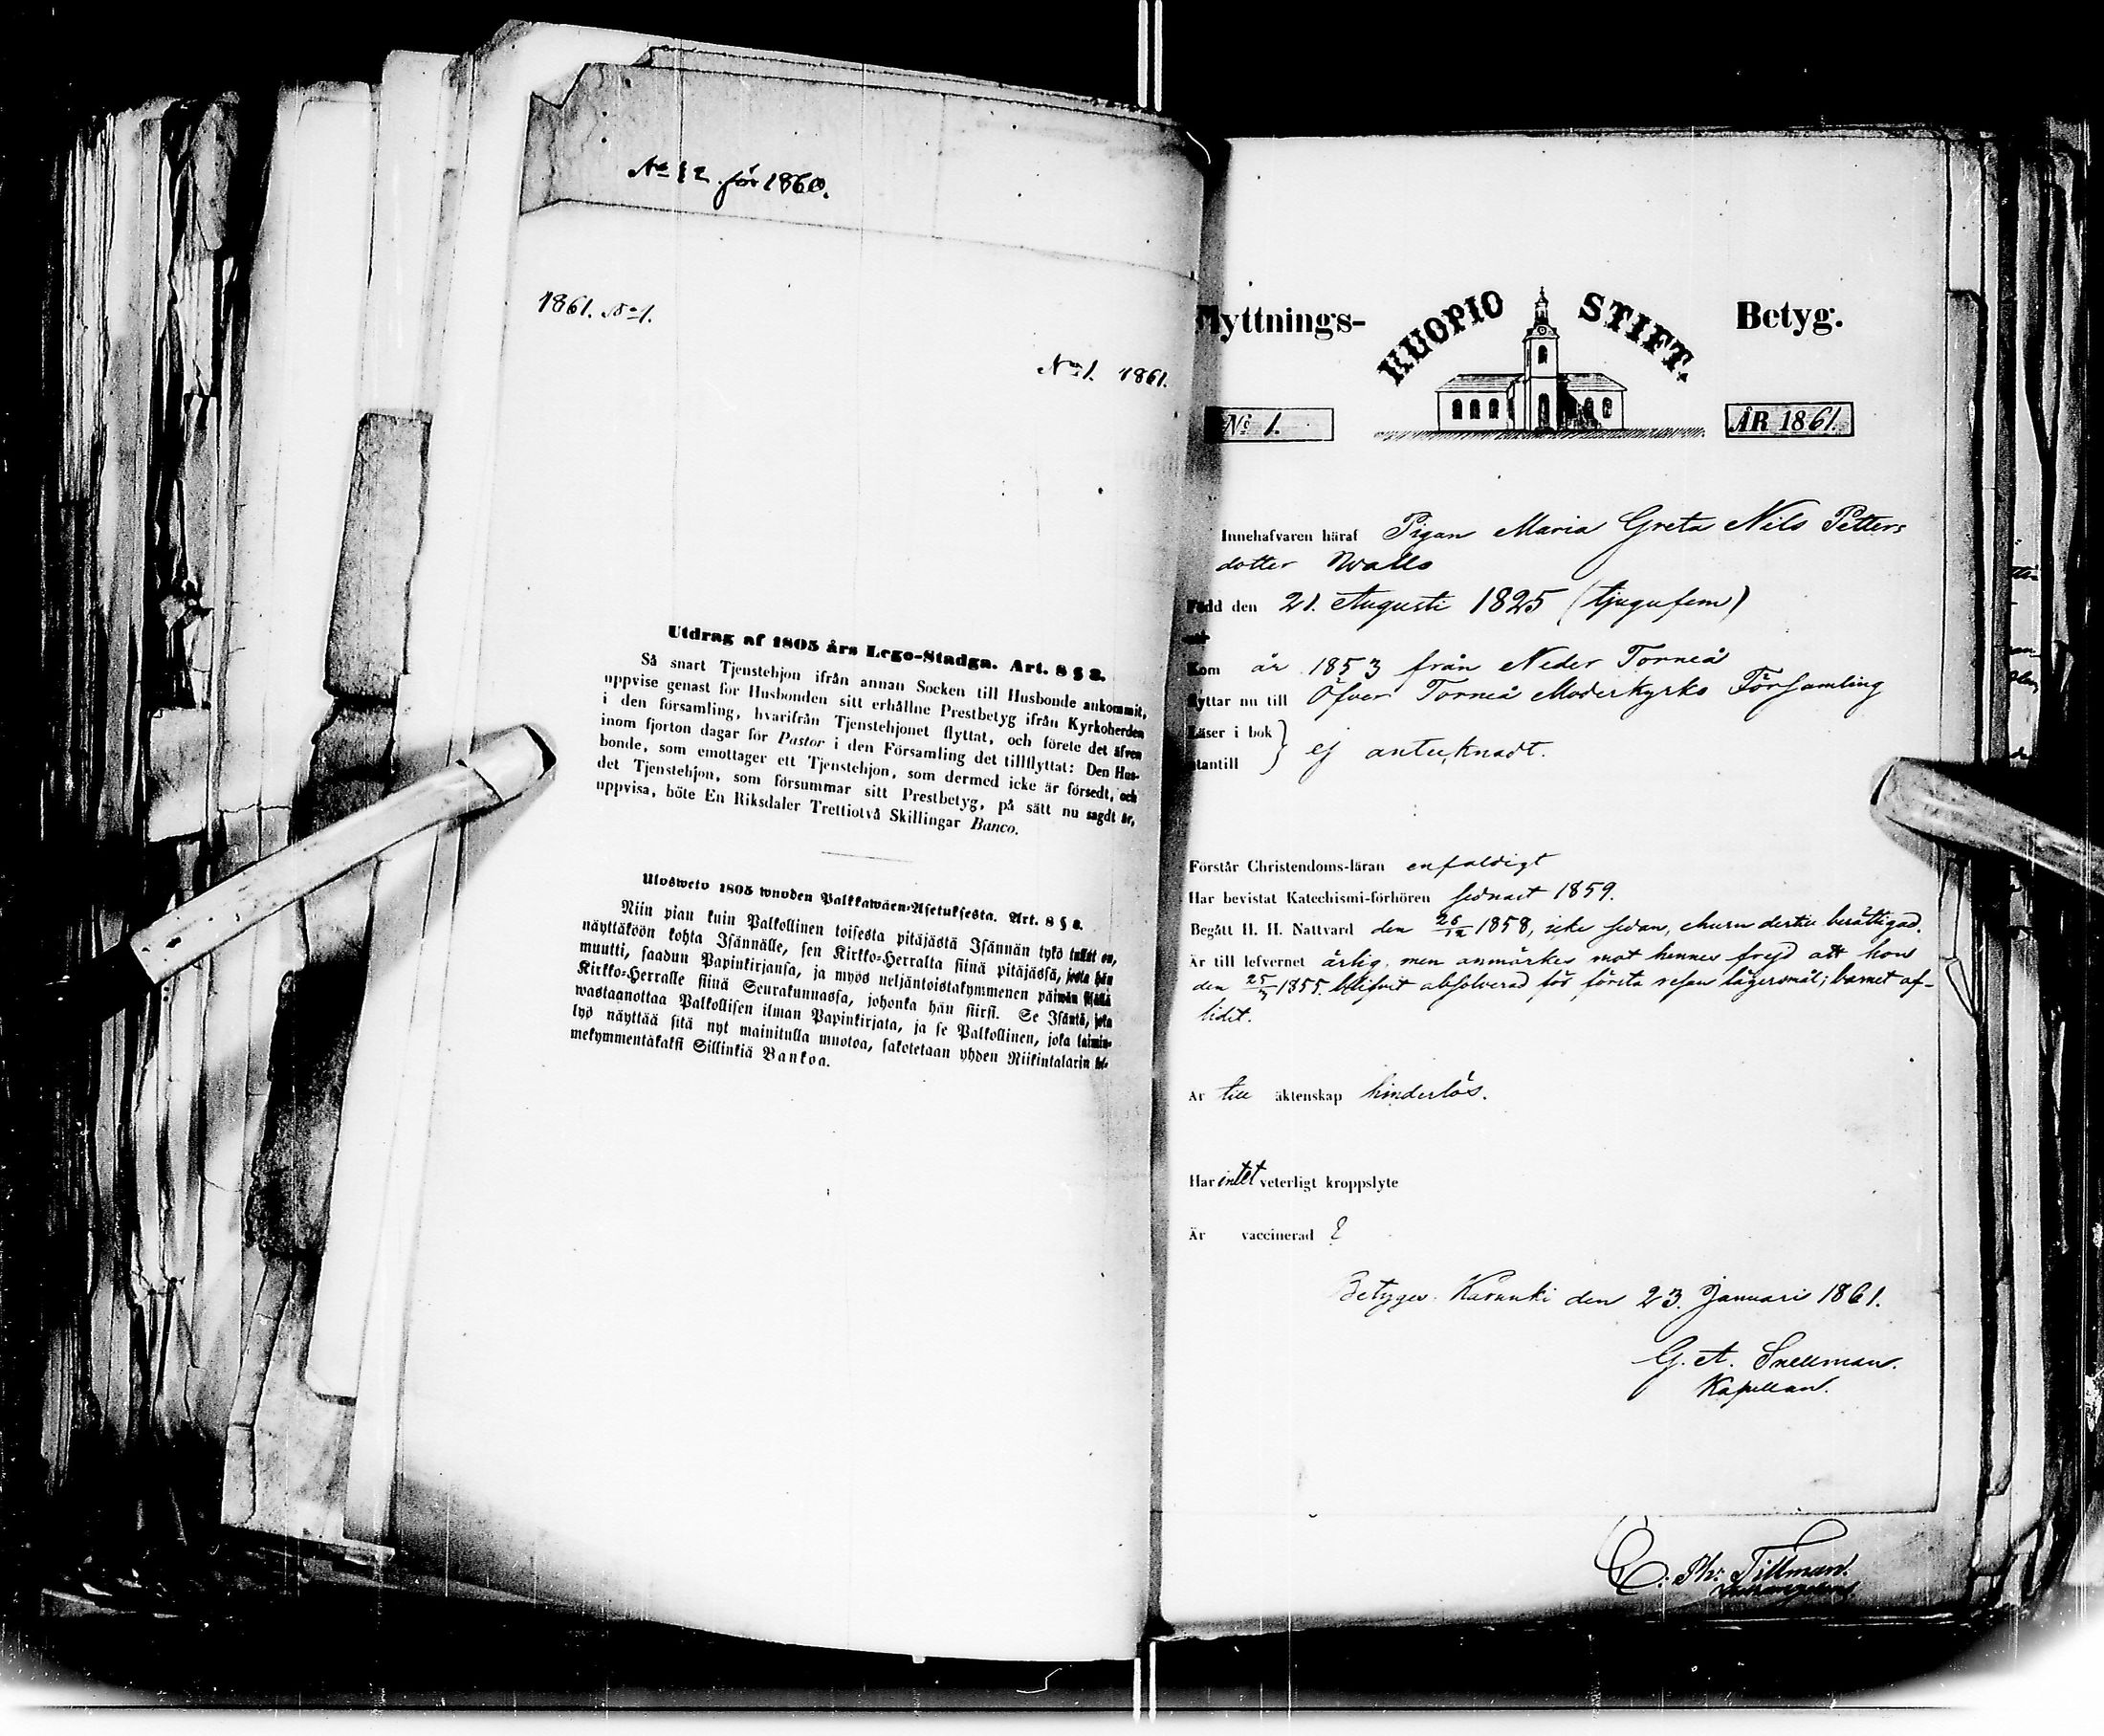 No 12. för 1860.
1861. No 1.
No 1. 1861.
Utdrag af 1805 års Lego-Stadga. Art. 8 § 8.
Så snart Tjenstehjon ifrån annan Socken till Husbonde ankommit,
uppvise genast för Husbonden sitt erhållne Prestbetyg ifrån Kyrkoherden
i den församling, hvarifrån Tjenstehjonet flyttat, och förete det äfven
inom fjorton dagar för Pastor i den Församling det tillflyttat: Den Hus-
bonde, som emottager ett Tjenstehjon, som dermed icke är försedt, och
det Tjenstehjon, som försummar sitt Prestbetyg, på sätt nu sagdt är,
uppvisa, böte En Riksdaler Trettiotvå Skillingar Banco.
Ulosweto 1805 wuoden Palkkawäen-Asetuksesta. Art. 8 § 8.
Niin pian kuin Palkollinen toisesta pitäjästä Isännän tykö tullut on,
näyttäköön kohta Isännälle, sen Kirkko-Herralta siinä pitäjässä, josta hän
muutti, saadun Papinkirjansa, ja myös neljäntoistakymmenen päiwän sisällä
Kirkko-Herralle siinä Seurakunnassa, johonka hän siirsi. Se Isäntä, joka
wastaanottaa Palkollisen ilman Papinkirjata, ja se Palkollinen, joka laimin-
lyö näyttää sitä nyt mainitulla muotoa, sakotetaan yhden Riikintalarin kol-
mekymmentäkaksi Sillinkiä Bankoa.
Flyttnings- KUOPIO STIFT. Betyg.
No 1. ÅR 1861.
Innehafvaren häraf Pigan Maria Greta Nils Petters
dotter Walls
Född den 21. Augusti 1825 (tjugufem)
Kom år 1853 från Neder Torneå
flyttar nu till Öfver Torneå Moderkyrko Församling
Läser i bok
utantill } ej antecknadt.
Förstår Christendoms-läran enfaldigt
Har bevistat Katechismi-förhören sednast 1859.
Begått H. H. Nattvard den 26/12 1858, icke sedan, ehuru dertill berättigad.
Är till lefvernet ärlig, men anmärkes mot hennes frejd att hon
den 25/3 1855. blifvit absolverad för första resan lägersmål; barnet af-
lidit.
Är till äktenskap hinderlös.
Har intet veterligt kroppslyte
Är vaccinerad ?
Betygar. Karunki den 23. Januari 1861.
G. A. Snellman.
Kapellan.
C. Ph. Tillman.